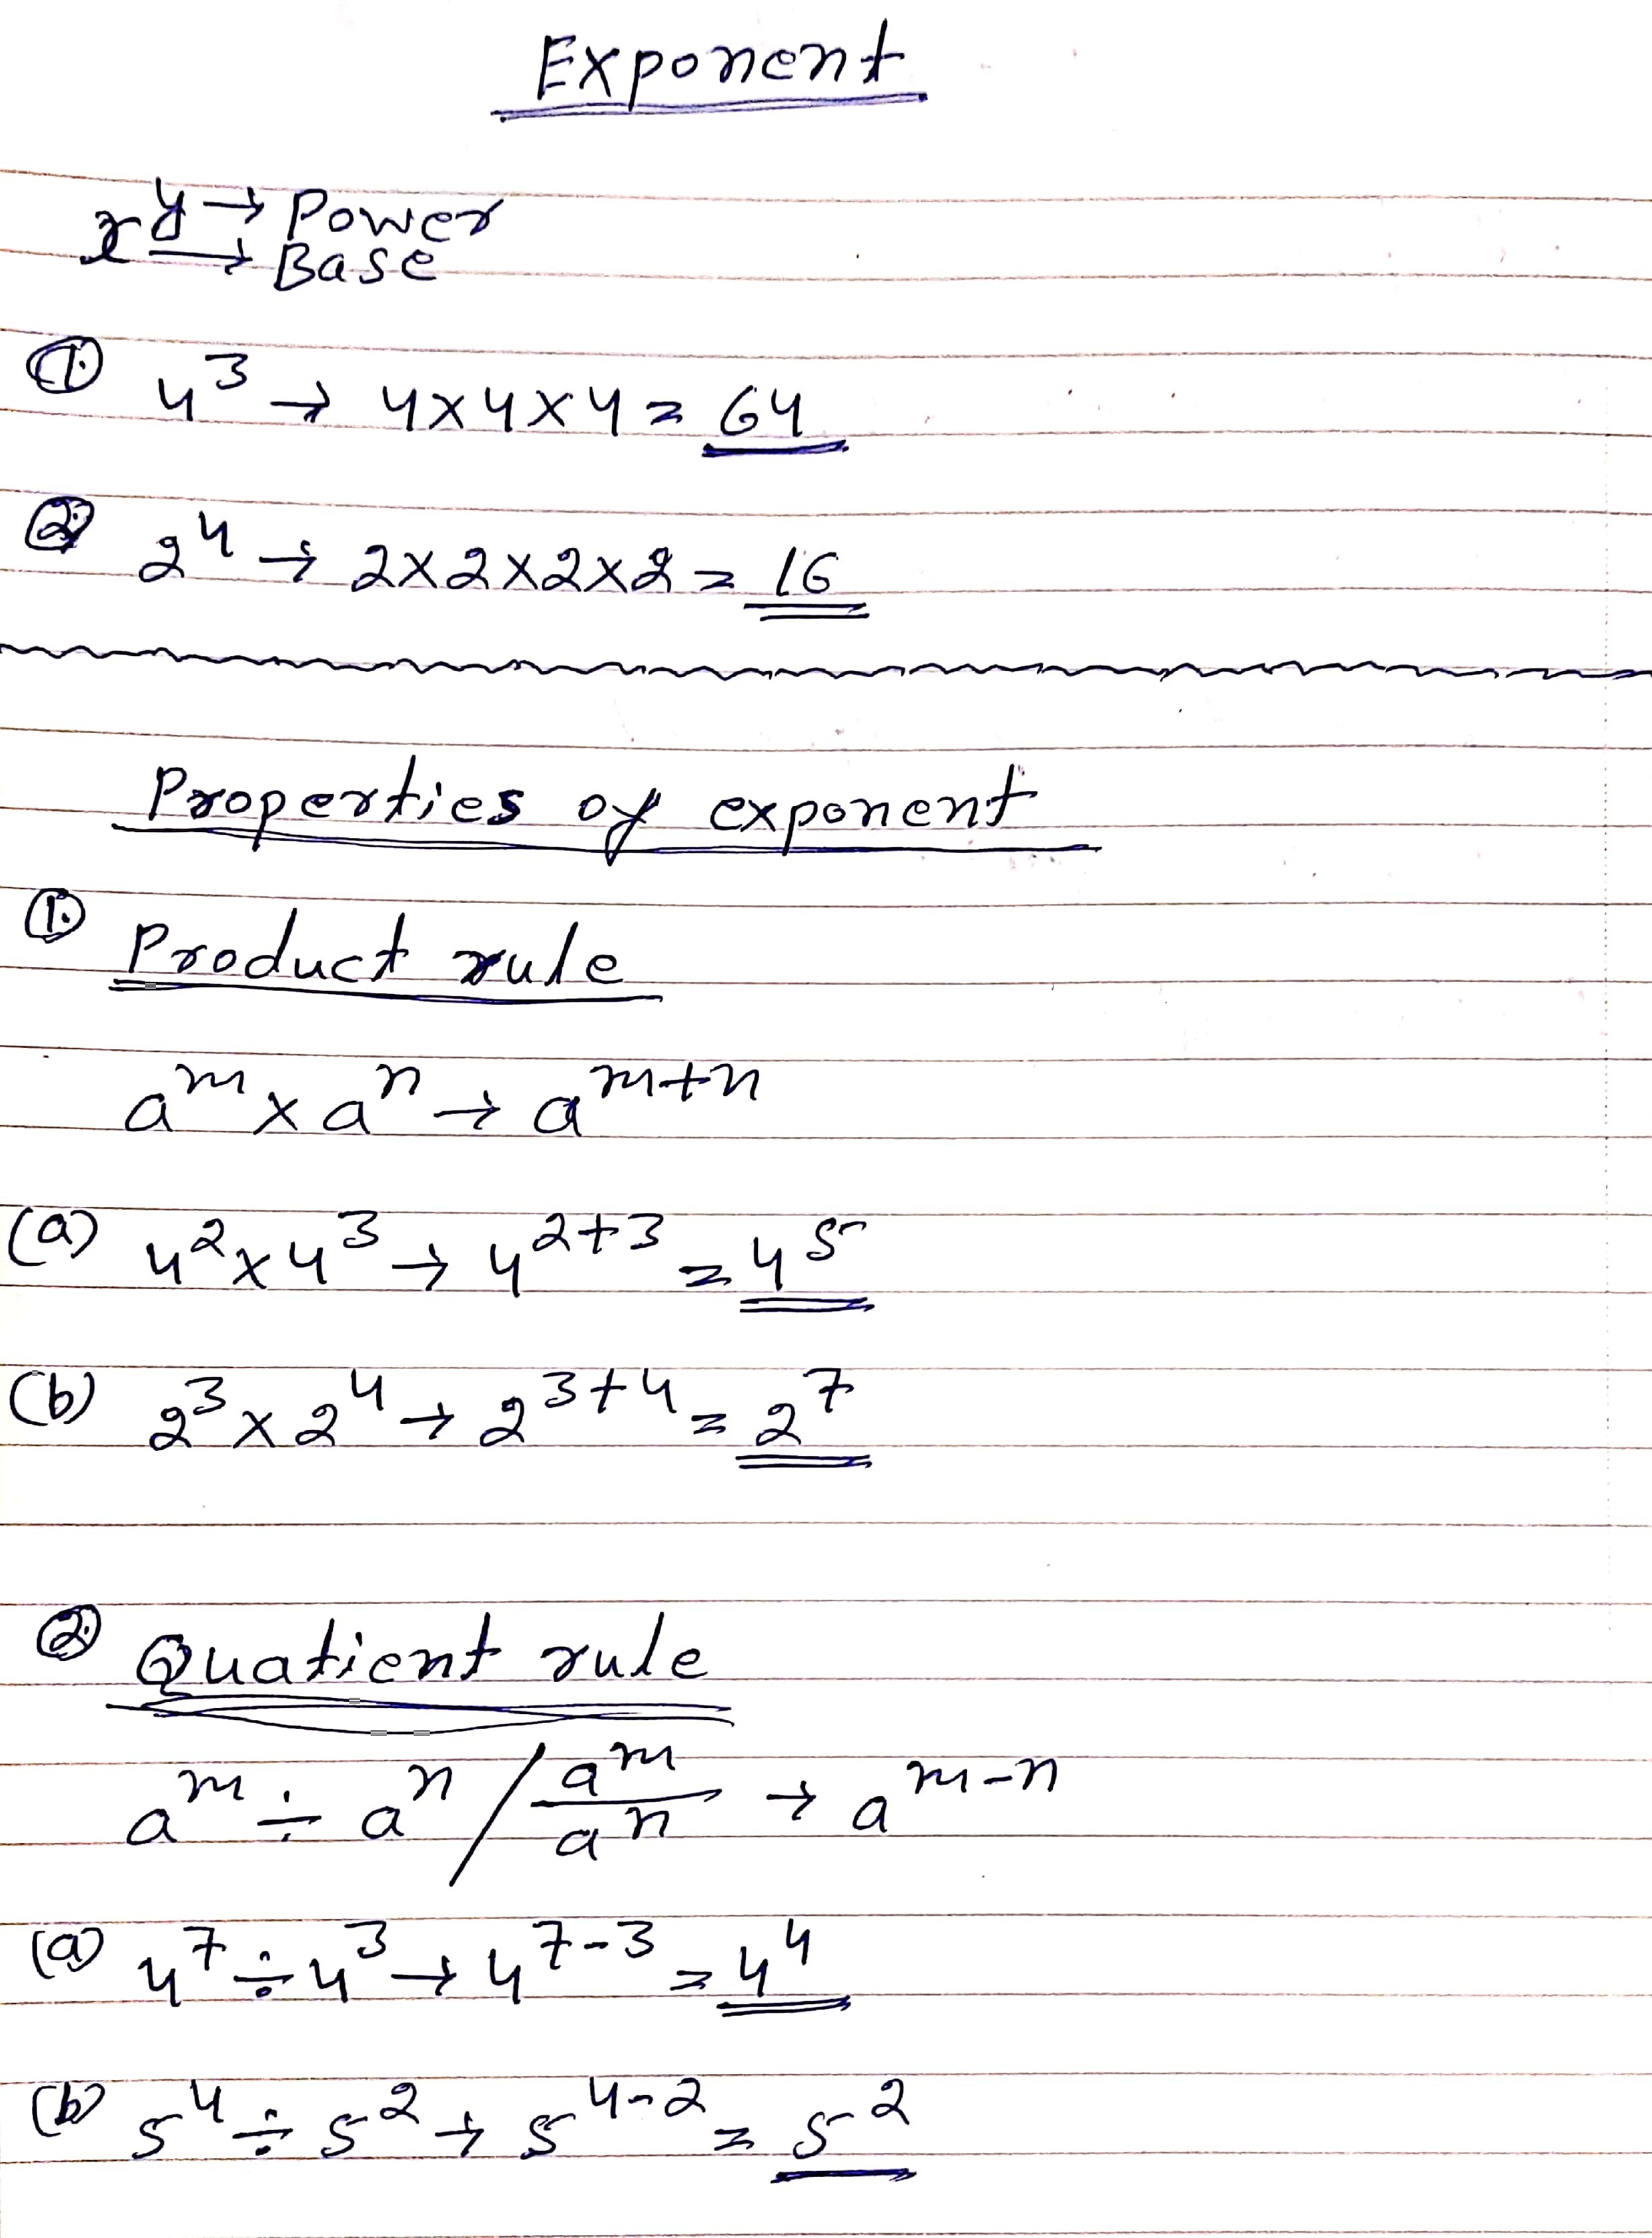 Exponent
x^y → Power
→ Base
① 4^3 → 4×4×4 = 64
② 2^4 → 2×2×2×2 = 16
Properties of exponent
① Product rule
a^m × a^n → a^m+n
(a) 4^2 × 4^3 → 4^2+3 = 4^5
(b) 2^3 × 2^4 → 2^3+4 = 2^7
② Quatient rule
a^m ÷ a^n / a^m/a^n → a^m-n
(a) 4^7 ÷ 4^3 → 4^7-3 = 4^4
(b) 5^4 ÷ 5^2 → 5^4-2 = 5^2